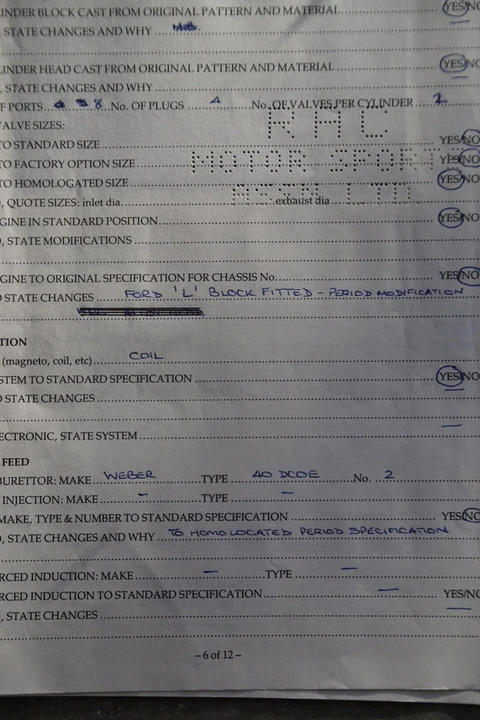 INDER BLOCK CAST FROM ORIGINAL PATTERN AND MATERIAL YES/NO
STATE CHANGES AND WHY
LINDER HEAD CAST FROM ORIGINAL PATTERN AND MATERIAL YES/NO
, STATE CHANGES AND WHY
F PORTS 8 No. OF PLUGS 4 No. OF VALVES PER CYLINDER 2
RAC
ALVE SIZES:
TO STANDARD SIZE YES/NO
MOTOR SPORTS
TO FACTORY OPTION SIZE YES/NO
TO HOMOLOGATED SIZE YES/NO
ASSN LTD
, QUOTE SIZES: inlet dia. exhaust dia
GINE IN STANDARD POSITION YES/NO
, STATE MODIFICATIONS
GINE TO ORIGINAL SPECIFICATION FOR CHASSIS No. YES/NO
STATE CHANGES FORD 'L' BLOCK FITTED - PERIOD MODIFICATION
TION
(magneto, coil, etc) COIL
STEM TO STANDARD SPECIFICATION YES/NO
STATE CHANGES
ECTRONIC, STATE SYSTEM
FEED
BURETTOR: MAKE WEBER TYPE 40 DCOE No. 2
INJECTION: MAKE - TYPE -
MAKE, TYPE & NUMBER TO STANDARD SPECIFICATION YES/NO
, STATE CHANGES AND WHY TO HOMOLOGATED PERIOD SPECIFICATION
RCED INDUCTION: MAKE - TYPE -
RCED INDUCTION TO STANDARD SPECIFICATION - YES/NO
, STATE CHANGES
– 6 of 12 –